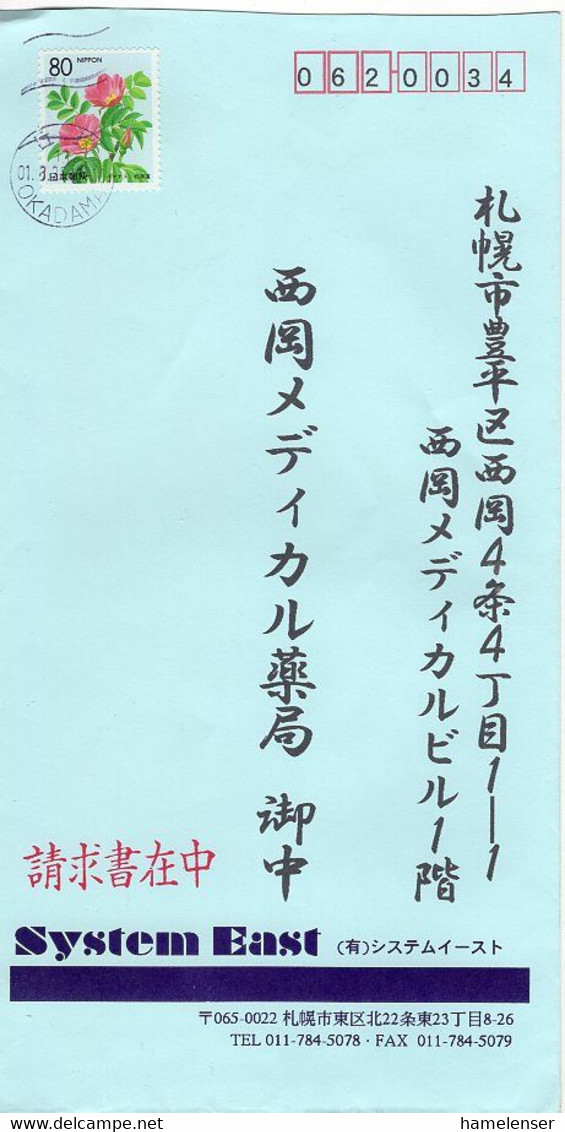 80 NIPPON
日本郵便
01.8.
OKADAMA
0620034
札幌市豊平区西岡4条4丁目1-1
西岡メディカルビル1階
西岡メディカル薬局 御中
請求書在中
System East (有)システムイースト
〒065-0022 札幌市東区北22条東23丁目8-26
TEL 011-784-5078・FAX 011-784-5079
www.delcampe.net
hamelenser